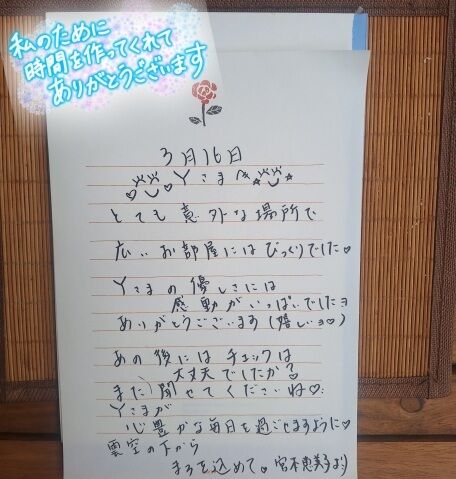 私のために
時間を作ってくれて
ありがとうございます
3月16日
Yさまへ
とても意外な場所で
広いお部屋にはびっくりでした♡
Yさまの優しさには
感動がいっぱいでしたヨ
ありがとうございます(嬉しいヨ♡)
あの後にはチェックは
大丈夫でしたか?
また聞かせてくださいね♡
Yさまが
心豊かな毎日を過ごせますように♡
雲空の下から
を込めて。宮本恵美子より